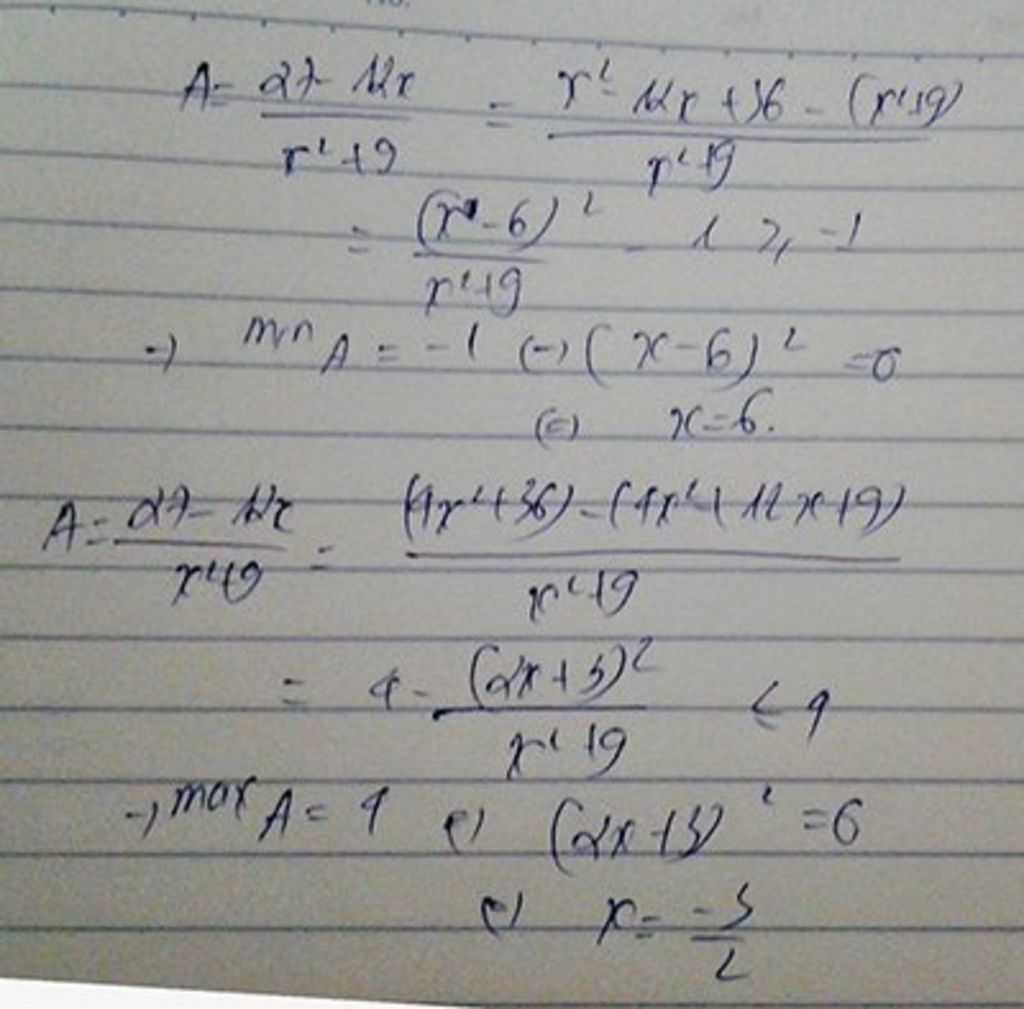 A = \frac{27 - 12x}{x^2+9} = \frac{x^2 - 12x + 36 - (x^2+9)}{x^2+9}
= \frac{(x-6)^2}{x^2+9} - 1 ≥ -1
→ min A = -1 (=) (x-6)^2 = 0
(=) x = 6.
A = \frac{27 - 12x}{x^2+9} = \frac{(4x^2+36) - (4x^2+12x+9)}{x^2+9}
= 4 - \frac{(2x+3)^2}{x^2+9} ≤ 4
→ max A = 4 (=) (2x+3)^2 = 6
(=) x = \frac{-3}{2}